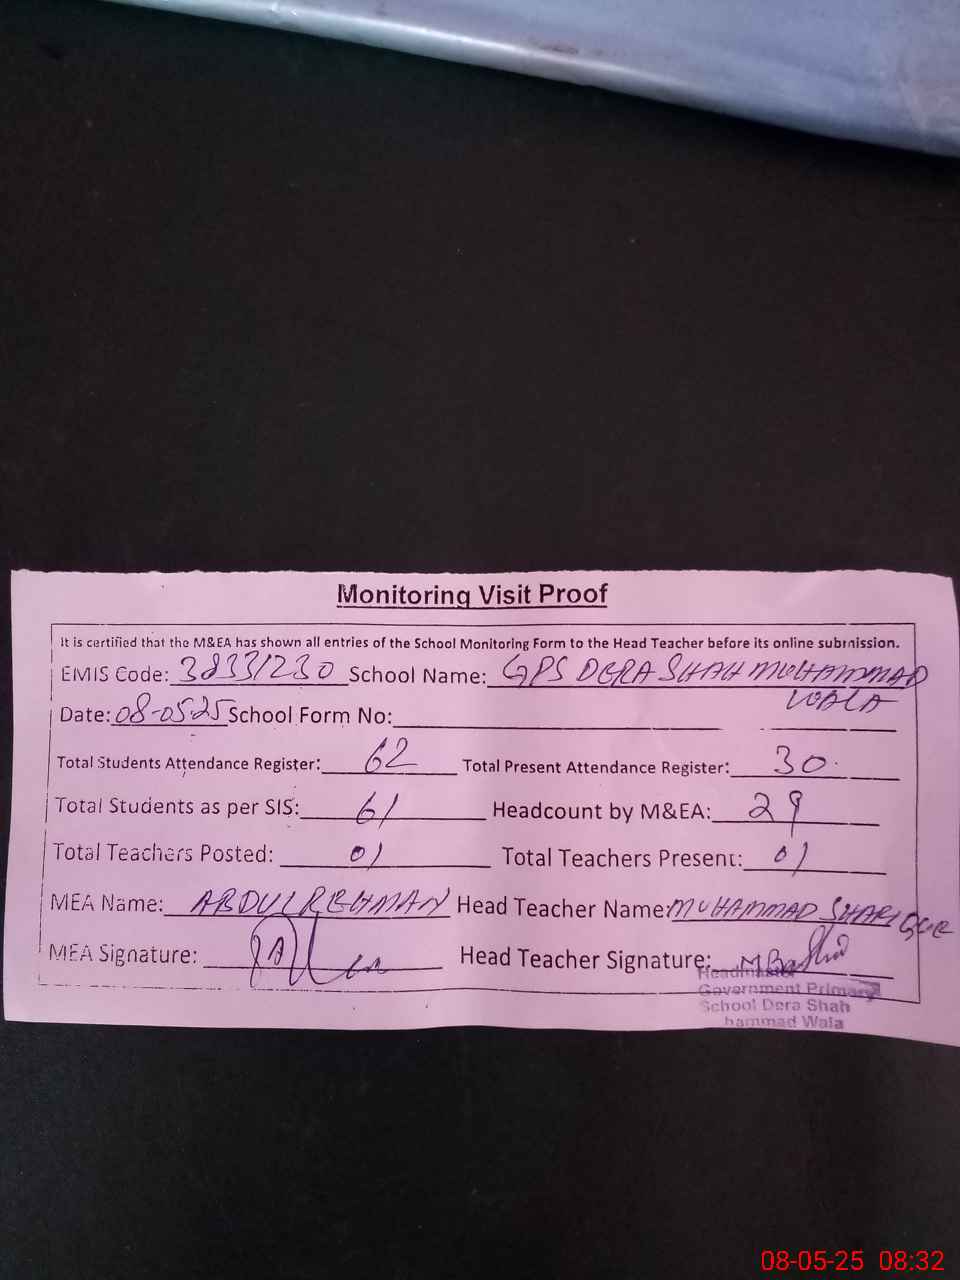 Monitoring Visit Proof
It is certified that the M&EA has shown all entries of the School Monitoring Form to the Head Teacher before its online submission.
EMIS Code: 38331230 School Name: GPS DERA SHAH MUHAMMAD
WALA
Date: 08-05-25 School Form No:
Total Students Attendance Register: 62 Total Present Attendance Register: 30
Total Students as per SIS: 61 Headcount by M&EA: 29
Total Teachers Posted: 01 Total Teachers Present: 01
MEA Name: ABDUL REHMAN Head Teacher Name MUHAMMAD SHARIQUE
MEA Signature: Head Teacher Signature:
Headmaster
Government Primary
School Dera Shah
hammad Wala
08-05-25 08:32